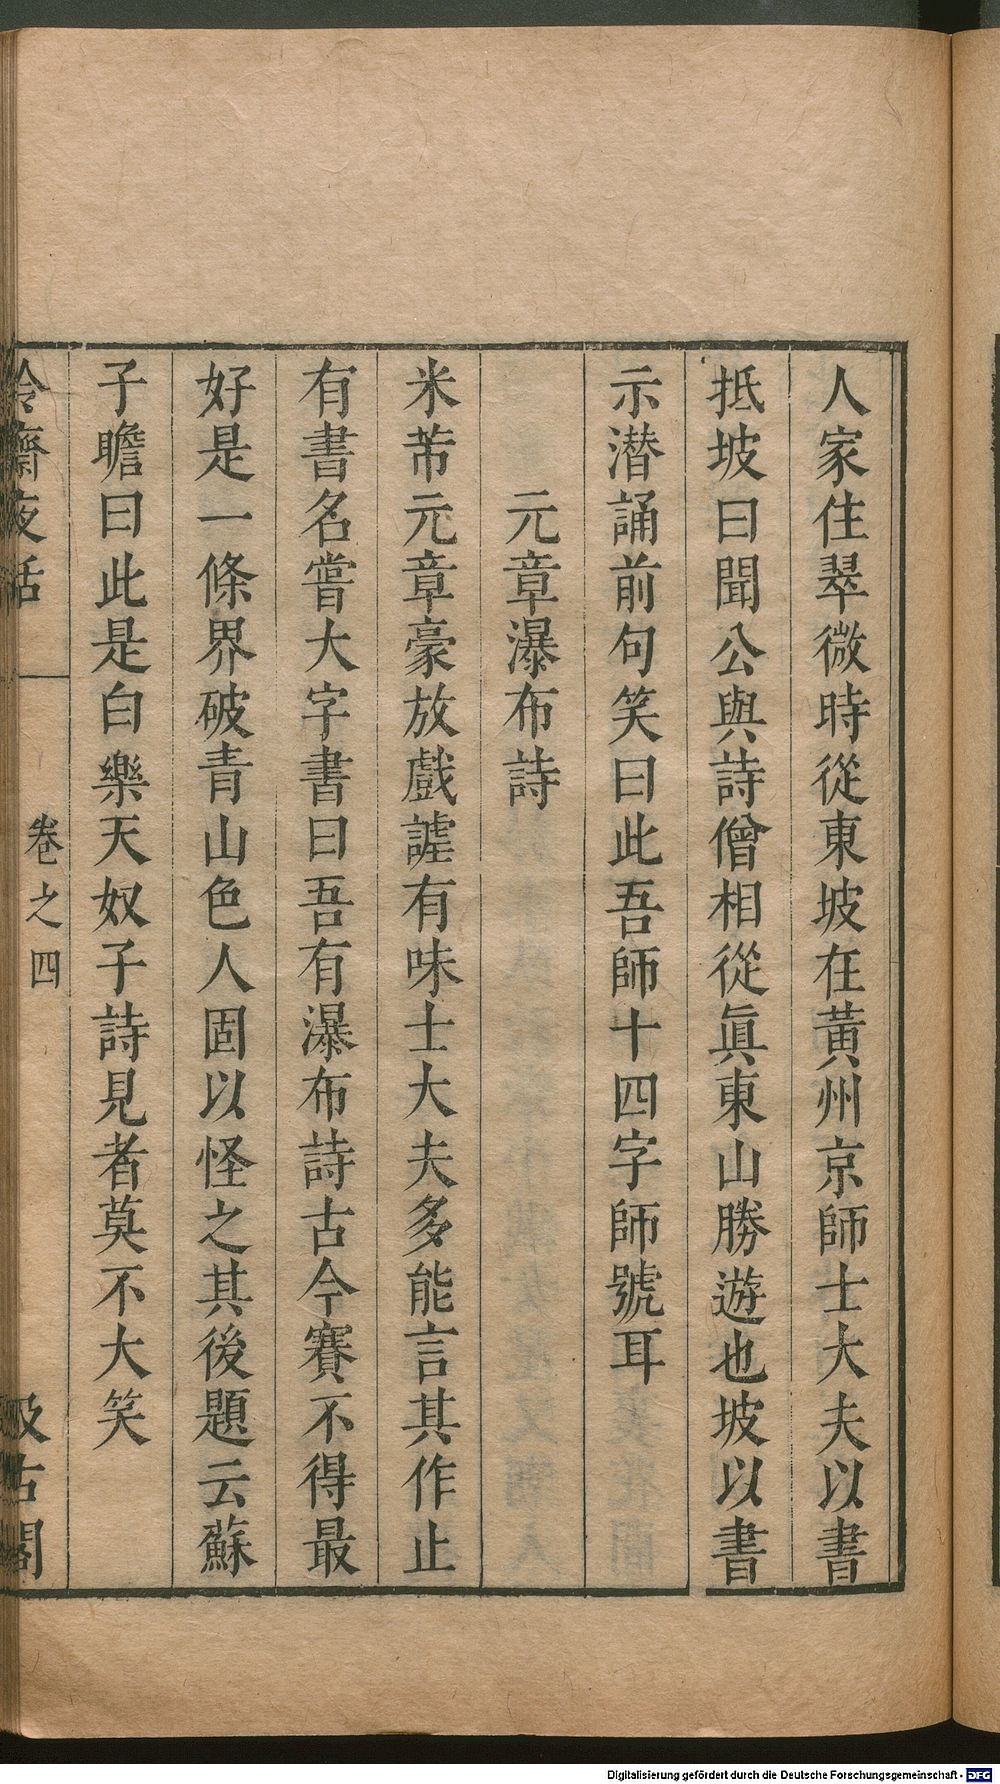 人家住翠微時從東坡在黃州京師士大夫以書
抵坡曰聞公與詩僧相從眞東山勝遊也坡以書
示潛誦前句笑曰此吾師十四字師號耳
元章瀑布詩
米芾元章豪放戲謔有味士大夫多能言其作止
有書名嘗大字書曰吾有瀑布詩古今賽不得最
好是一條界破青山色人固以怪之其後題云蘇
子瞻曰此是白樂天奴子詩見者莫不大笑
冷齋夜話
卷之四
汲古閣
Digitalisierung gefördert durch die Deutsche Forschungsgemeinschaft - DFG